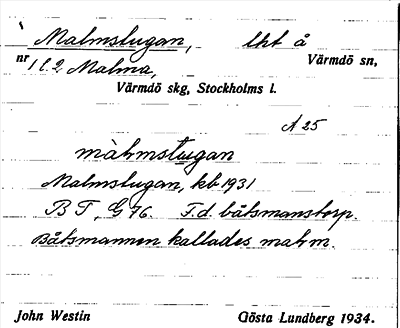 Malmstugan, lht å
nr 1 o. 2 Malma, Värmdö sn,
Värmdö skg, Stockholms l.
A 25
màlmstugan
Malmstugan, kb 1931
BT, G 76. F.d. båtsmanstorp.
Båtsmannen kallades malm.
John Westin Gösta Lundberg 1934.